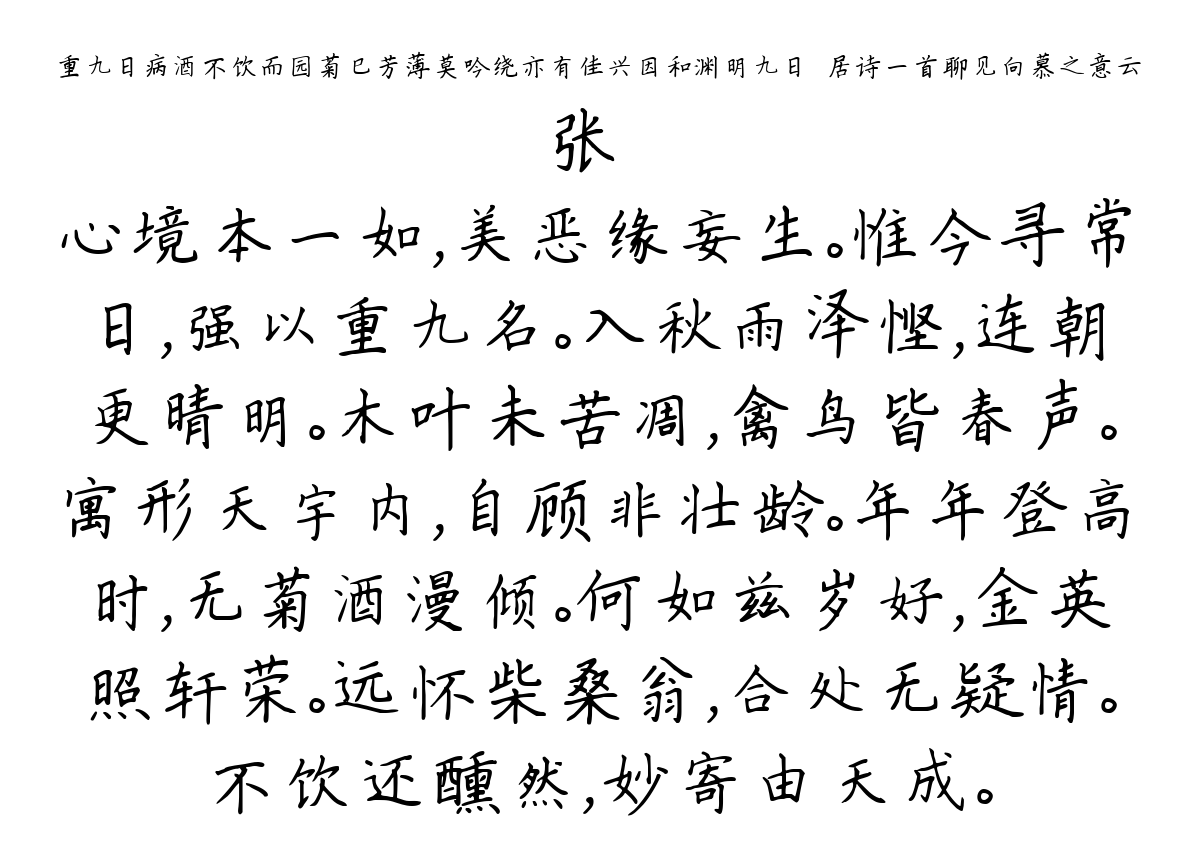 重九日病酒不饮而园菊已芳薄莫吟绕亦有佳兴因和渊明九日 居诗一首聊见向慕之意云
张
心境本一如,美恶缘妄生。惟今寻常
日,强以重九名。入秋雨泽悭,连朝
更晴明。木叶未苦凋,禽鸟皆春声。
寓形天宇内,自顾非壮龄。年年登高
时,无菊酒漫倾。何如兹岁好,金英
照轩荣。远怀柴桑翁,合处无疑情。
不饮还醺然,妙寄由天成。